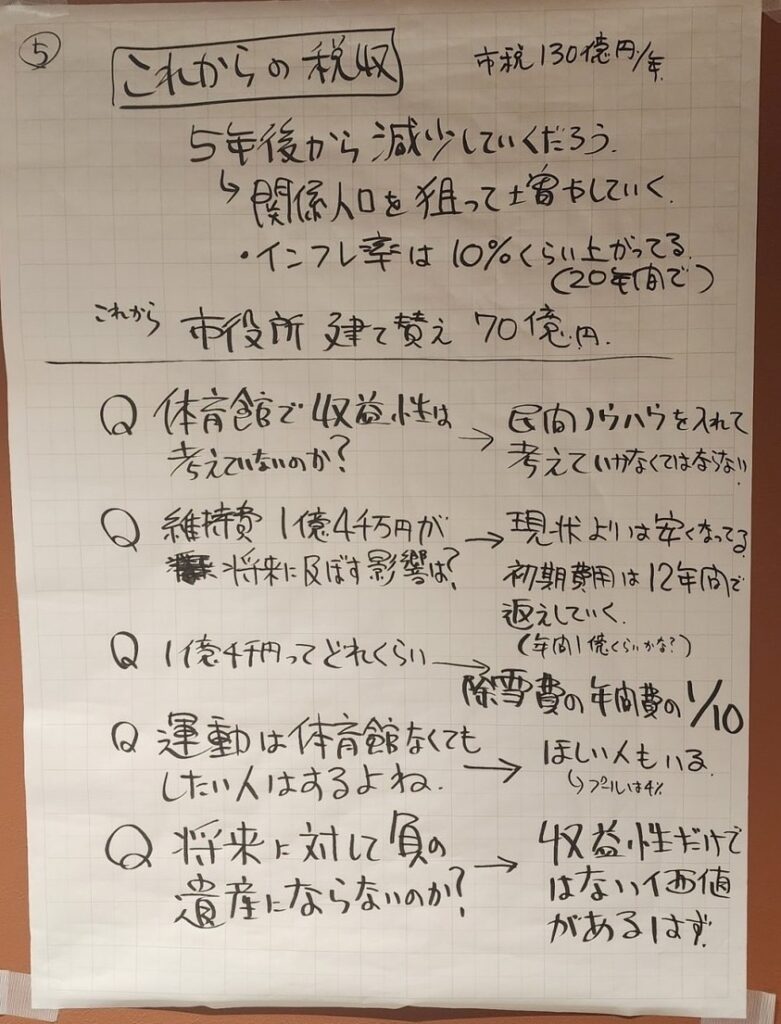 ⑤
これからの税収
市税130億円/年
5年後から減少していくだろう.
↳関係人口を狙って増やしていく.
・インフレ率は10%くらい上がってる.
(20年間で)
これから 市役所 建て替え 70億円.
Q 体育館で収益性は
考えていないのか?
→ 民間ノウハウを入れて
考えていかなくてはならない.
Q 維持費 1億4千万円が
将来に及ぼす影響は?
→ 現状よりは安くなってる.
初期費用は12年間で
返えしていく.
(年間1億くらいかな?)
Q 1億4千円ってどれくらい
→ 除雪費の年間費の1/10
Q 運動は体育館なくても
したい人はするよね.
→ ほしい人もいる.
↳プールは4%
Q 将来に対して負の
遺産にならないのか?
→ 収益性だけで
はない価値
があるはず.